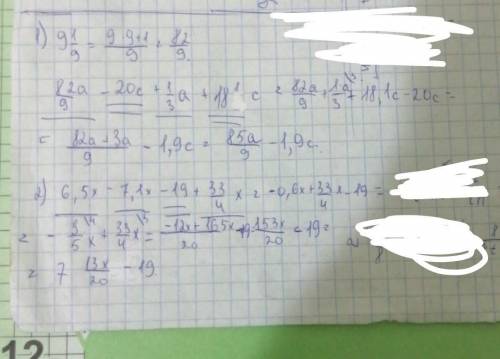 1) 9 1/9 = (9·9+1)/9 = 82/9
82/9 a - 20c + 1/3 a + 18,1 c = 82a/9 + 1/3 a + 18,1c - 20c =
= (82a+3a)/9 - 1,9c = 85a/9 - 1,9c.
2) 6,5x - 7,1x - 19 + 33/4 x = -0,6x + 33/4 x - 19 =
= - 3/5 x + 33/4 x = (-12x+165x)/20 - 19 = 153x/20 - 19 =
= 7 13x/20 - 19.
12